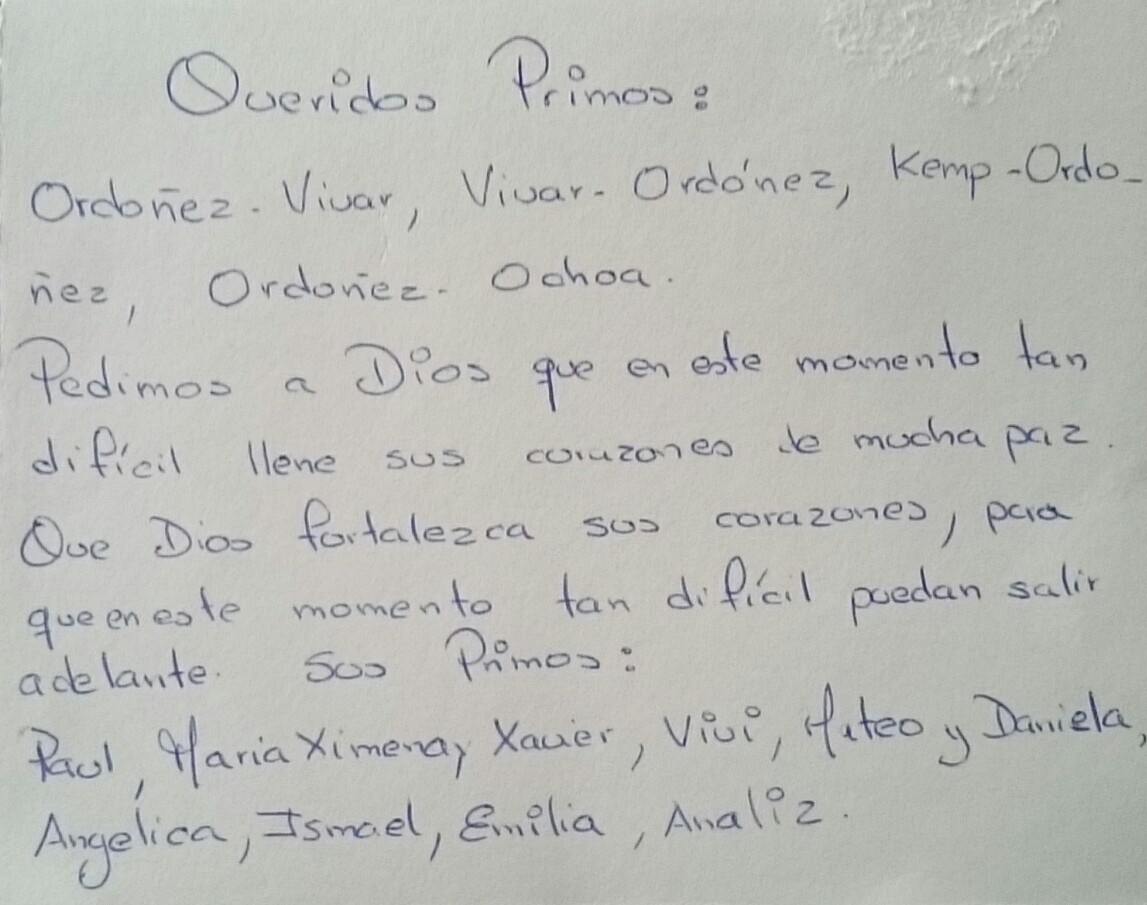 Queridos Primos:
Ordoñez - Vivar, Vivar - Ordóñez, Kemp - Ordo-
ñez, Ordoñez - Ochoa.
Pedimos a Dios que en este momento tan
difícil llene sus corazones de mucha paz.
Que Dios fortalezca sus corazones, para
que en este momento tan difícil puedan salir
adelante. Sus Primos:
Paul, Maria Ximena, Xavier, Vivi, Mateo y Daniela,
Angelica, Ismael, Emilia, Analiz.